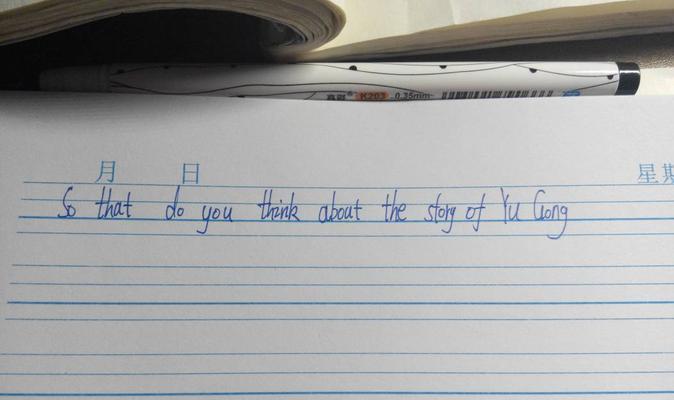 K203 0.35mm
月 日 星期
So that do you think about the story of Yu Gong